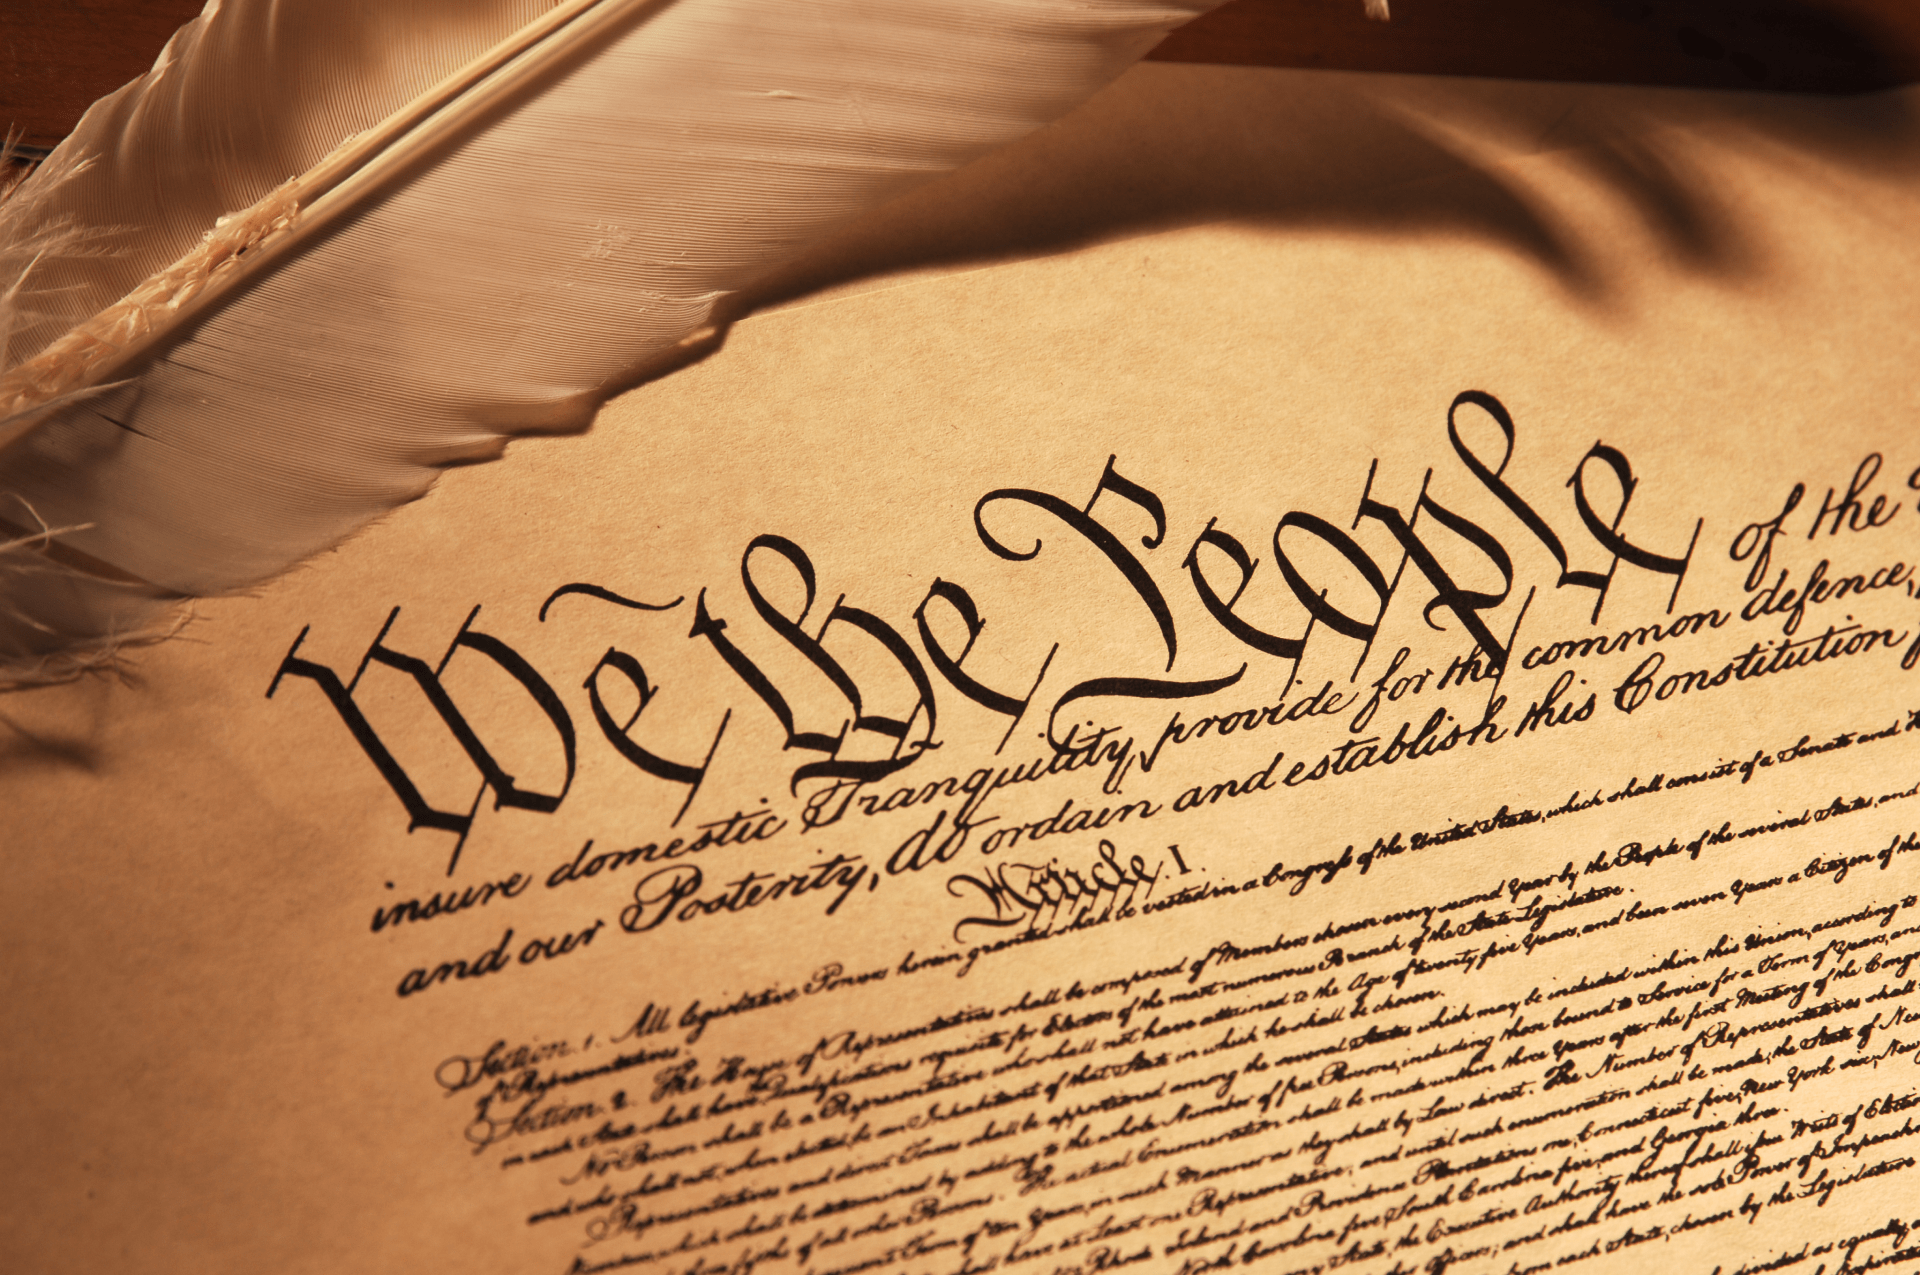 We the People of the
insure domestic Tranquility, provide for the common defence,
and our Posterity, do ordain and establish this Constitution
Article. I.
Section. 1. All legislative Powers herein granted shall be vested in a Congress of the United States, which shall consist of a Senate and
of Representatives.
Section. 2. The House of Representatives shall be composed of Members chosen every second Year by the People of the several States, and
in each State shall have Qualifications requisite for Electors of the most numerous Branch of the State Legislature.
No Person shall be a Representative who shall not have attained to the Age of twenty five Years, and been seven Years a Citizen of the
and who shall not, when elected, be an Inhabitant of that State in which he shall be chosen.
Representatives and direct Taxes shall be apportioned among the several States which may be included within this Union, according to
which shall be determined by adding to the whole Number of free Persons, including those bound to Service for a Term of Years, and
of all other Persons. The actual Enumeration shall be made within three Years after the first Meeting of the
Term of ten Years, in such Manner as they shall by Law direct. The Number of Representatives shall
shall have at Least one Representative; and until such enumeration shall be made, the State of
Rhode Island and Providence Plantations one, Connecticut five, New York six, New
North Carolina five, South Carolina five, and Georgia three.
State, the Executive Authority thereof shall issue Writs of
Officers; and shall have the sole Power of
from each State, chosen by the Legislature
divided as equally